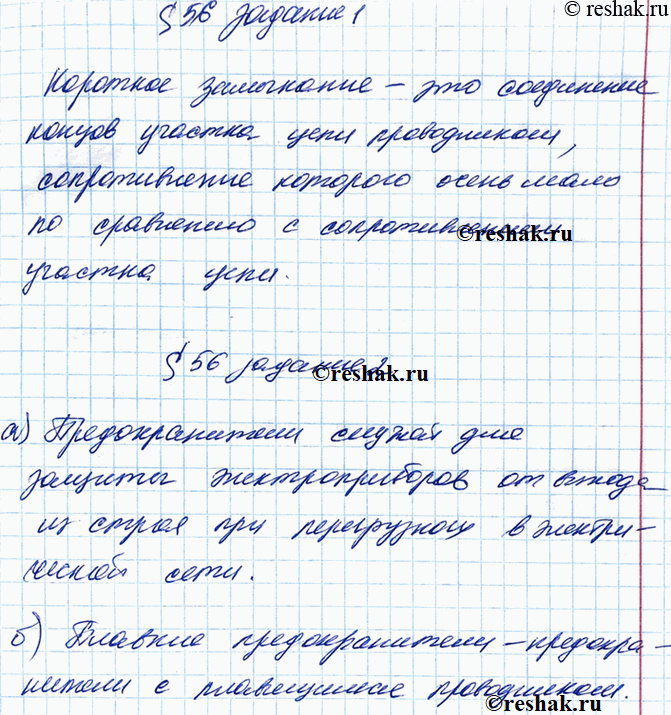 © reshak.ru
§ 56 задание 1
Короткое замыкание – это соединение
концов участка цепи проводником,
сопротивление которого очень мало
по сравнению с сопротивлением
© reshak.ru
участка цепи.
§ 56 задание 2
©reshak.ru
а) Предохранители служат для
защиты электроприборов от выхода
из строя при перегрузках в электри-
ческой сети.
© reshak.ru
б) Плавкие предохранители – предохра-
нители с плавящимся проводником.